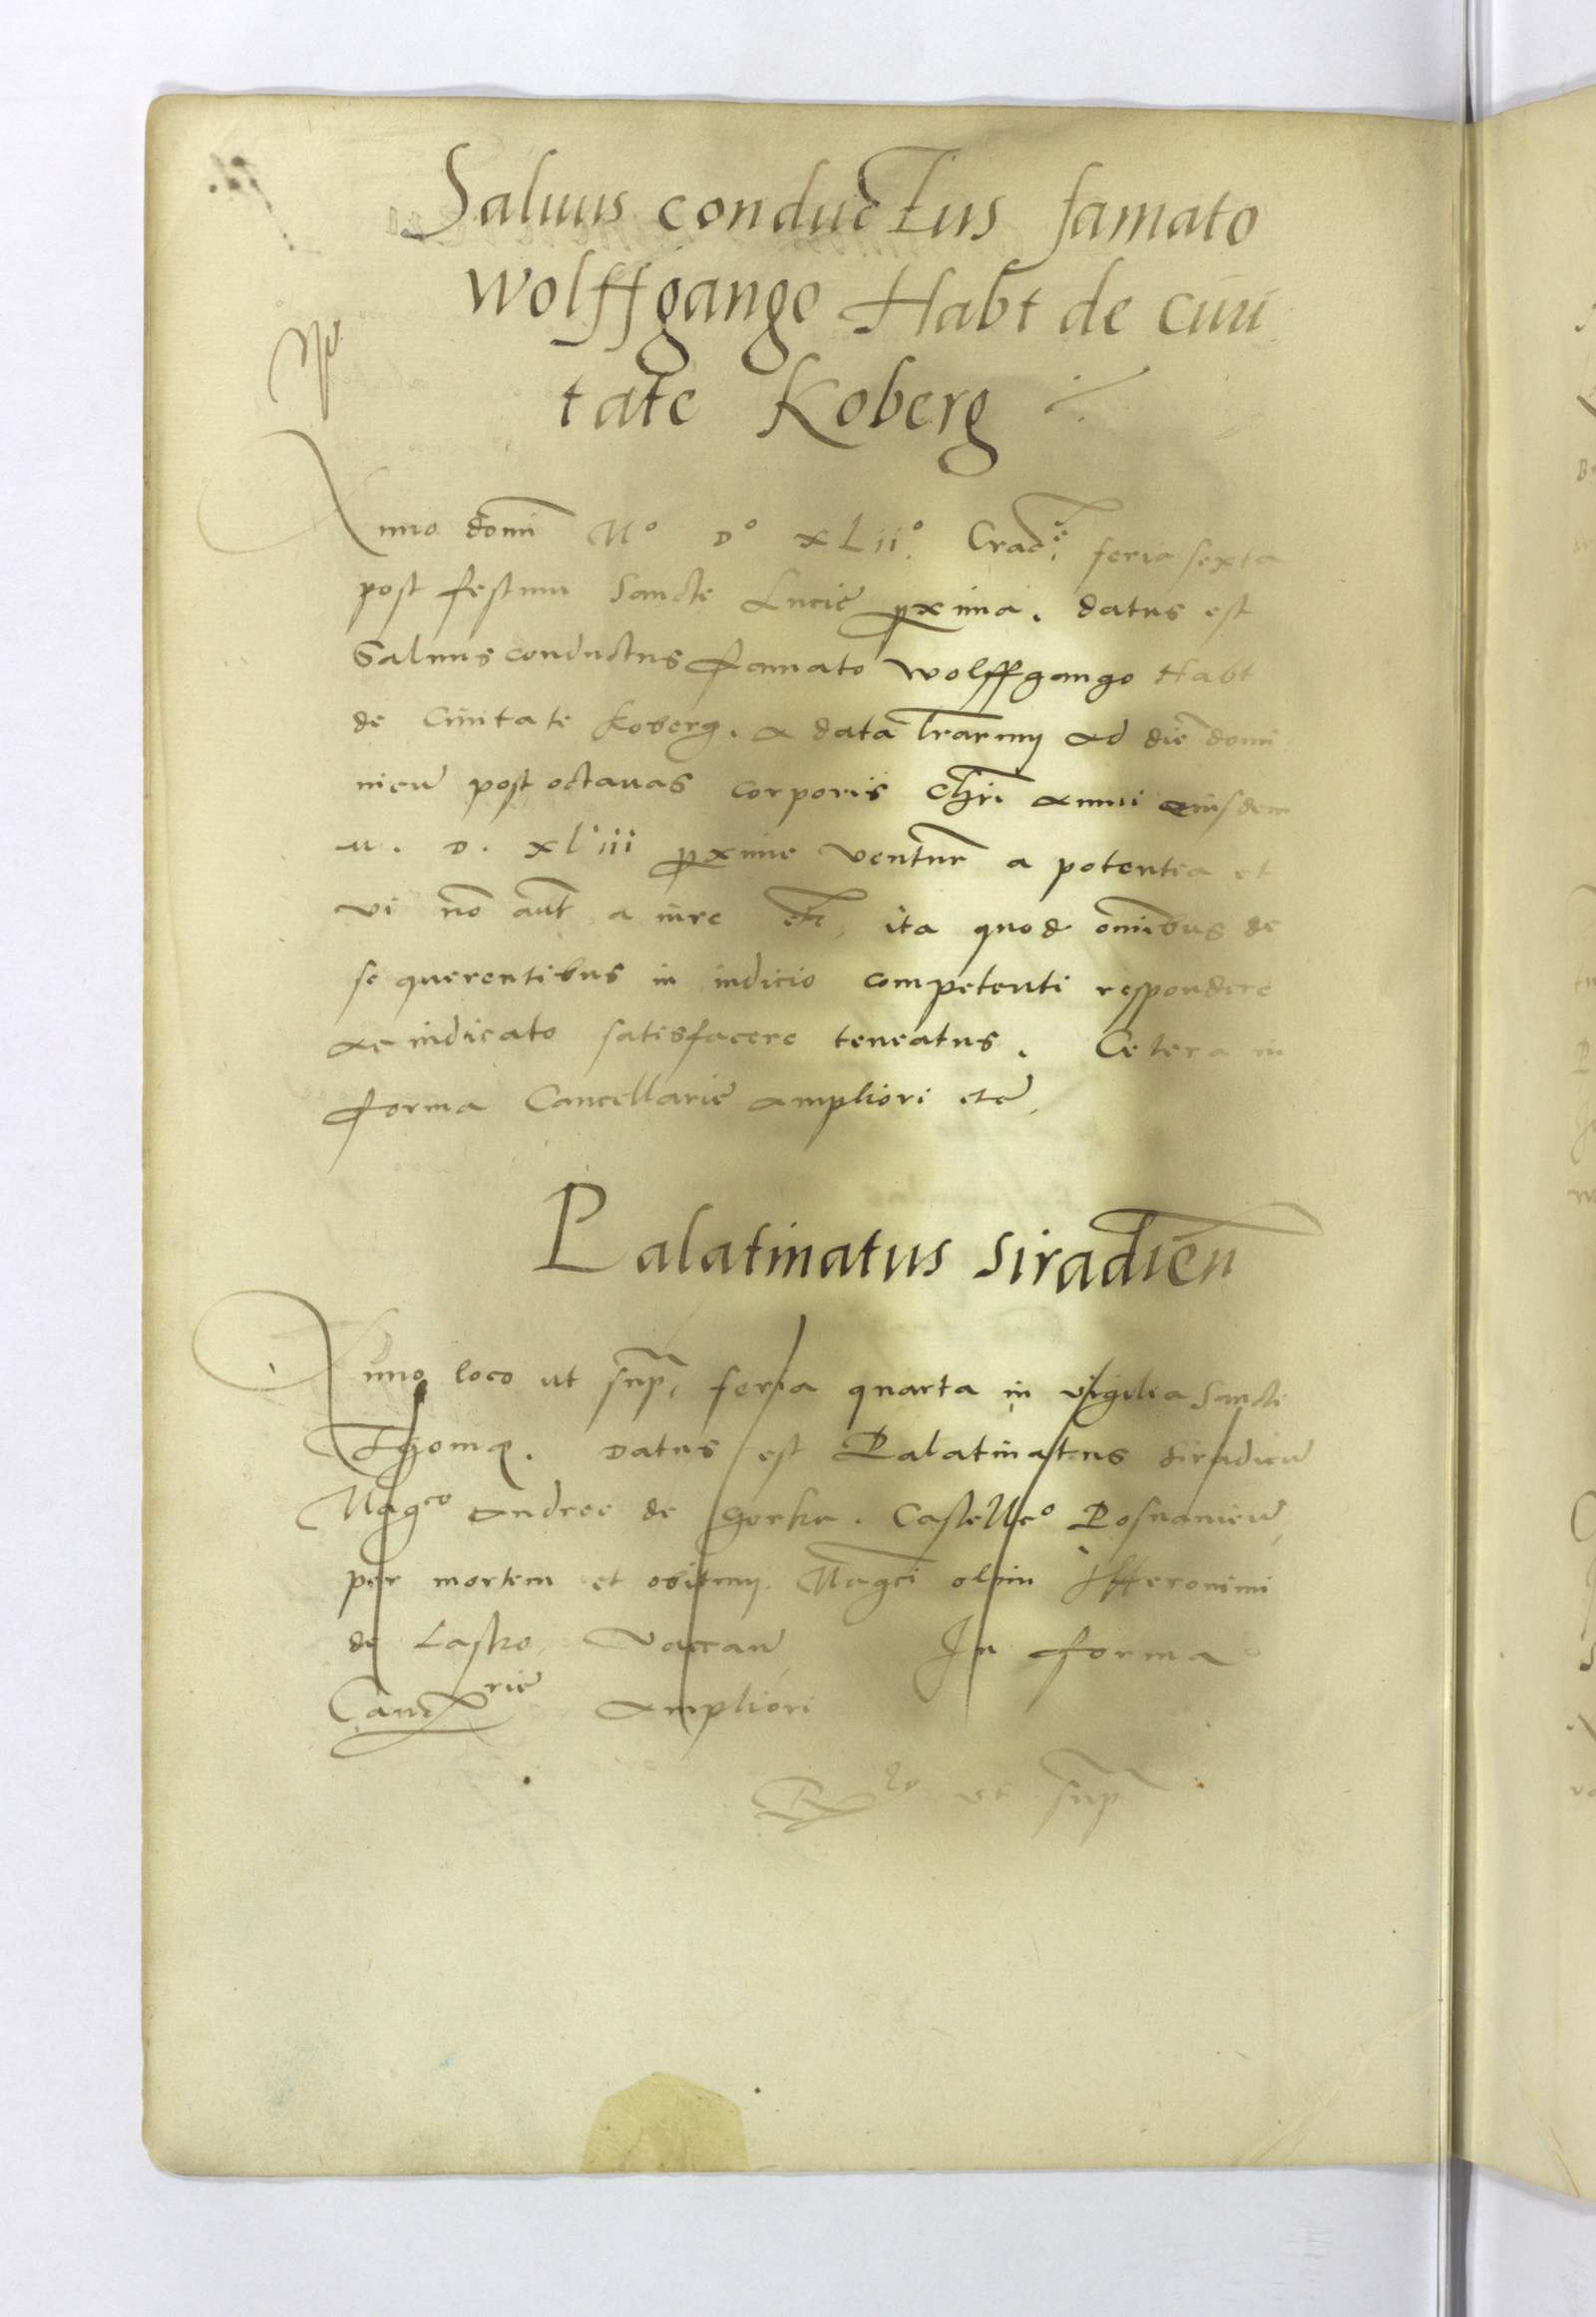 Saluus conductus famato
Wolffgango Habt de ciui
tate Koberg
Anno domī Mo Do XLiio. Craco feria sexta
post festum Sancte Lucie pxima. datus est
Saluus conductus famato wolffgango Habt
de Ciuitate Koberg. a data lrarum ad diē domi
nicū post octauas corporis chri anni eiusdem
M. D. xliii pxime ventur a potentia et
vi nō aut a iure etc, ita quod omibus de
se querentibus in iudicio competenti respondere
ac iudicato satisfacere teneatus. Cetera in
forma Cancellarie ampliori etc
Palatinatus siradien
Anno loco ut sup, feria quarta in vigilia Sancti
Thomę. Datus est Palatinatus Siradien
Magco Andree de Gorka. Castellco Posnanien,
per mortem et obitum. Magci olim Hieronimi
de Lasko vaccan In forma
Cancrie ampliori
ut sup